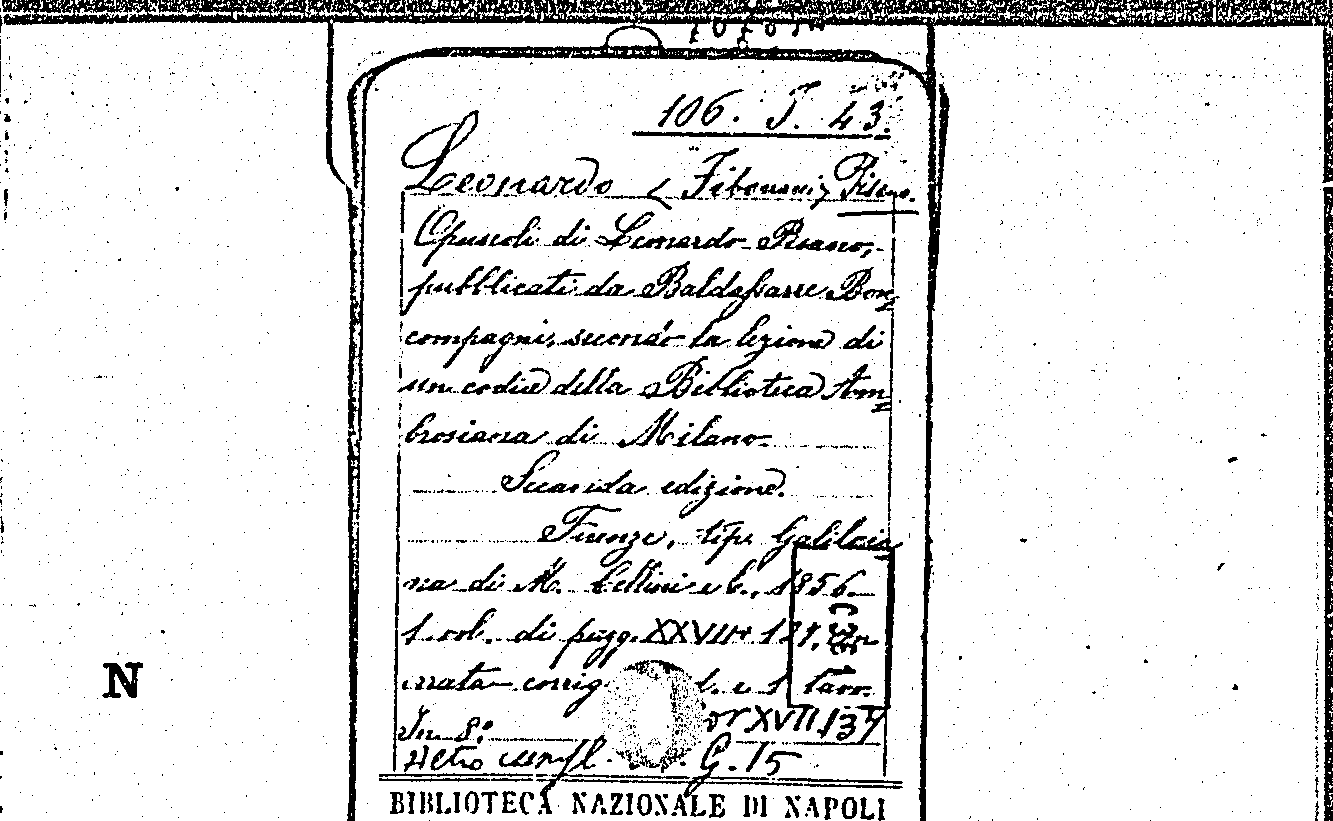 106. J. 43.
Leonardo (Fibonacci) Pisano.
Opuscoli di Leonardo Pisano,
pubblicati da Baldassarre Bon=
compagni, secondo la lezione di
un codice della Biblioteca Am=
brosiana di Milano
Seconda edizione.
Firenze, tip. Galileia=
na di M. Cellini e C., 1856.
1 vol. di pagg. XXVIII+
errata corrig e 1 tavo.
In 8.° XVII.
Altro G. 15
BIBLIOTECA NAZIONALE DI NAPOLI
N